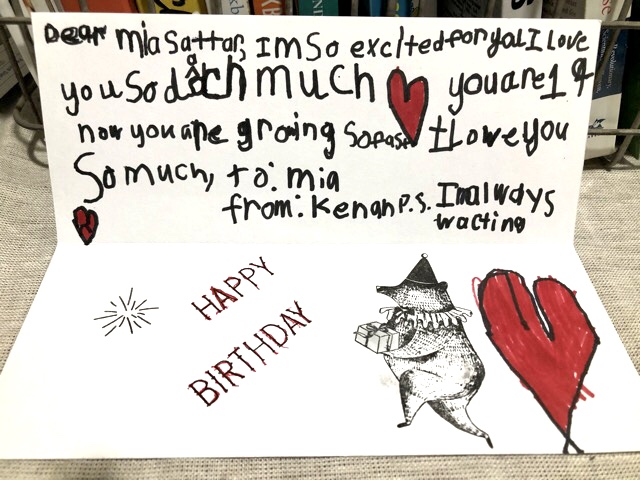 Dear mia sattar, I'm so excited for you I love
you so dach much you are 19
now you are groing so fast I Love you
So much, to: mia
from: Kenan P.S. Im always
wacting
HAPPY
BIRTHDAY